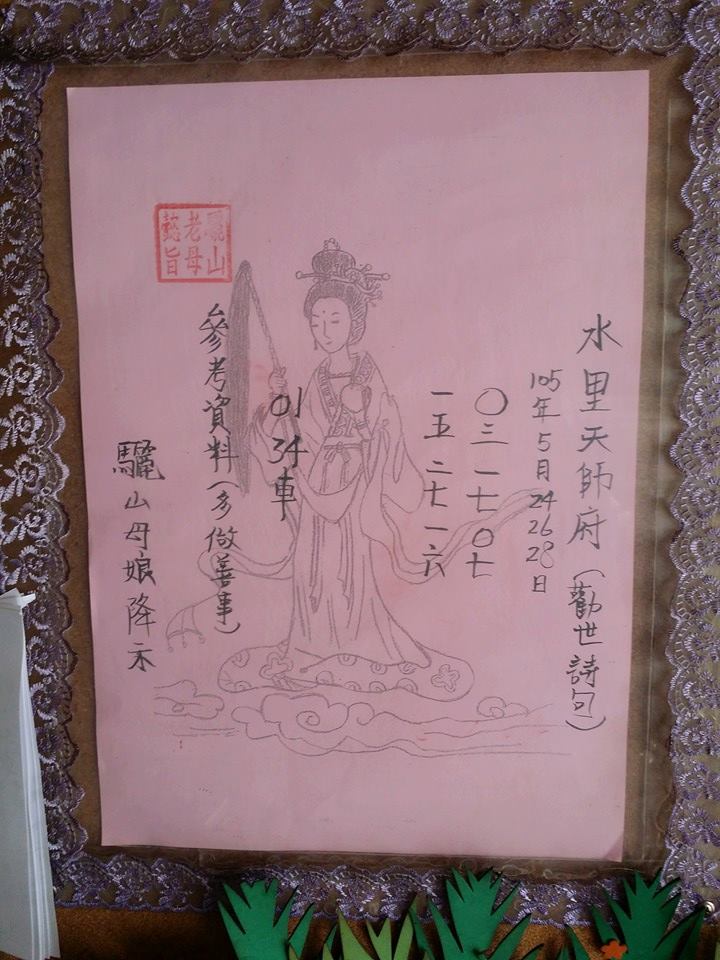 水里天師府(勸世詩句)
105年5月24 26 28日
〇三 一七 〇七
一五 二七 一六
01 34車
參考資料(多做善事)
驪山老母懿旨
驪山母娘降示